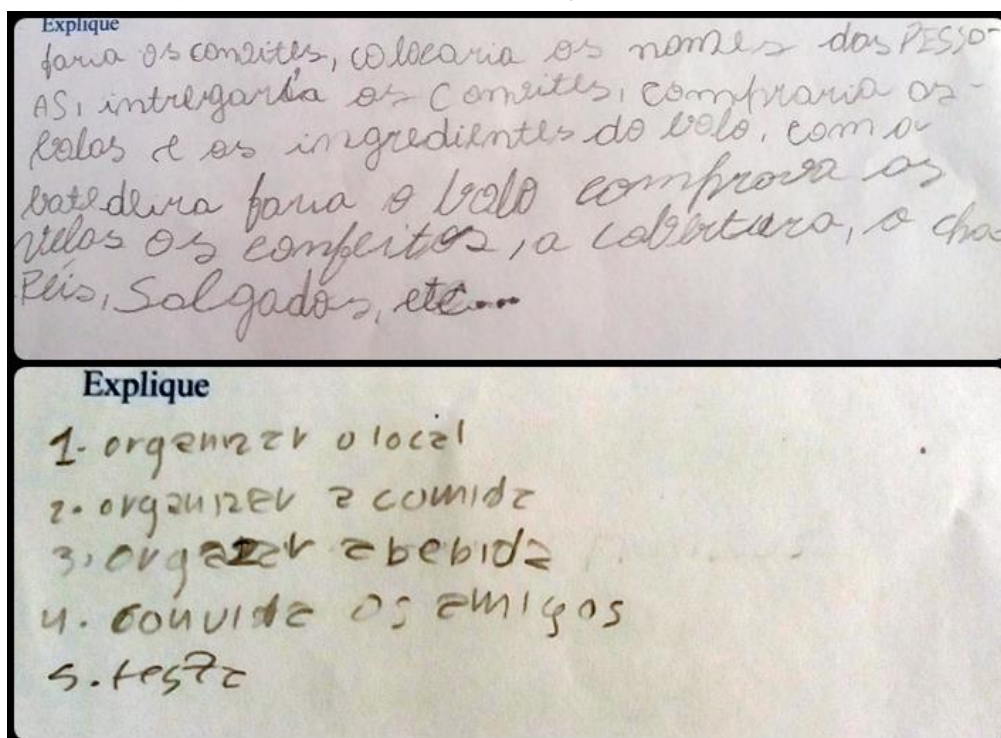 Explique
faria os convites, colocaria os nomes das PESSO-
AS, intregaria os convites, compraria as
balas e os ingredientes do bolo, com a
batedeira faria o bolo comprova as
velas os confeitos, a cobertura, o cha
Péis, Salgados, etc...
Explique
1- organizar o local
2. organizer a comida
3. orgazar a bebida
4. convida os amigos
5. festa